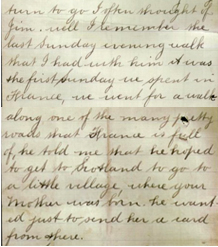 turn to go I often thought of
Jim. well I remember the
last Sunday evening walk
that I had with him it was
the first Sunday we spent in
France, we went for a walk
along one of the many pretty
roads that France is full
of, he told me that he hoped
to get to Scotland to go to
a little village, where your
Mother was born. he want
ed just to send her a card
from there.